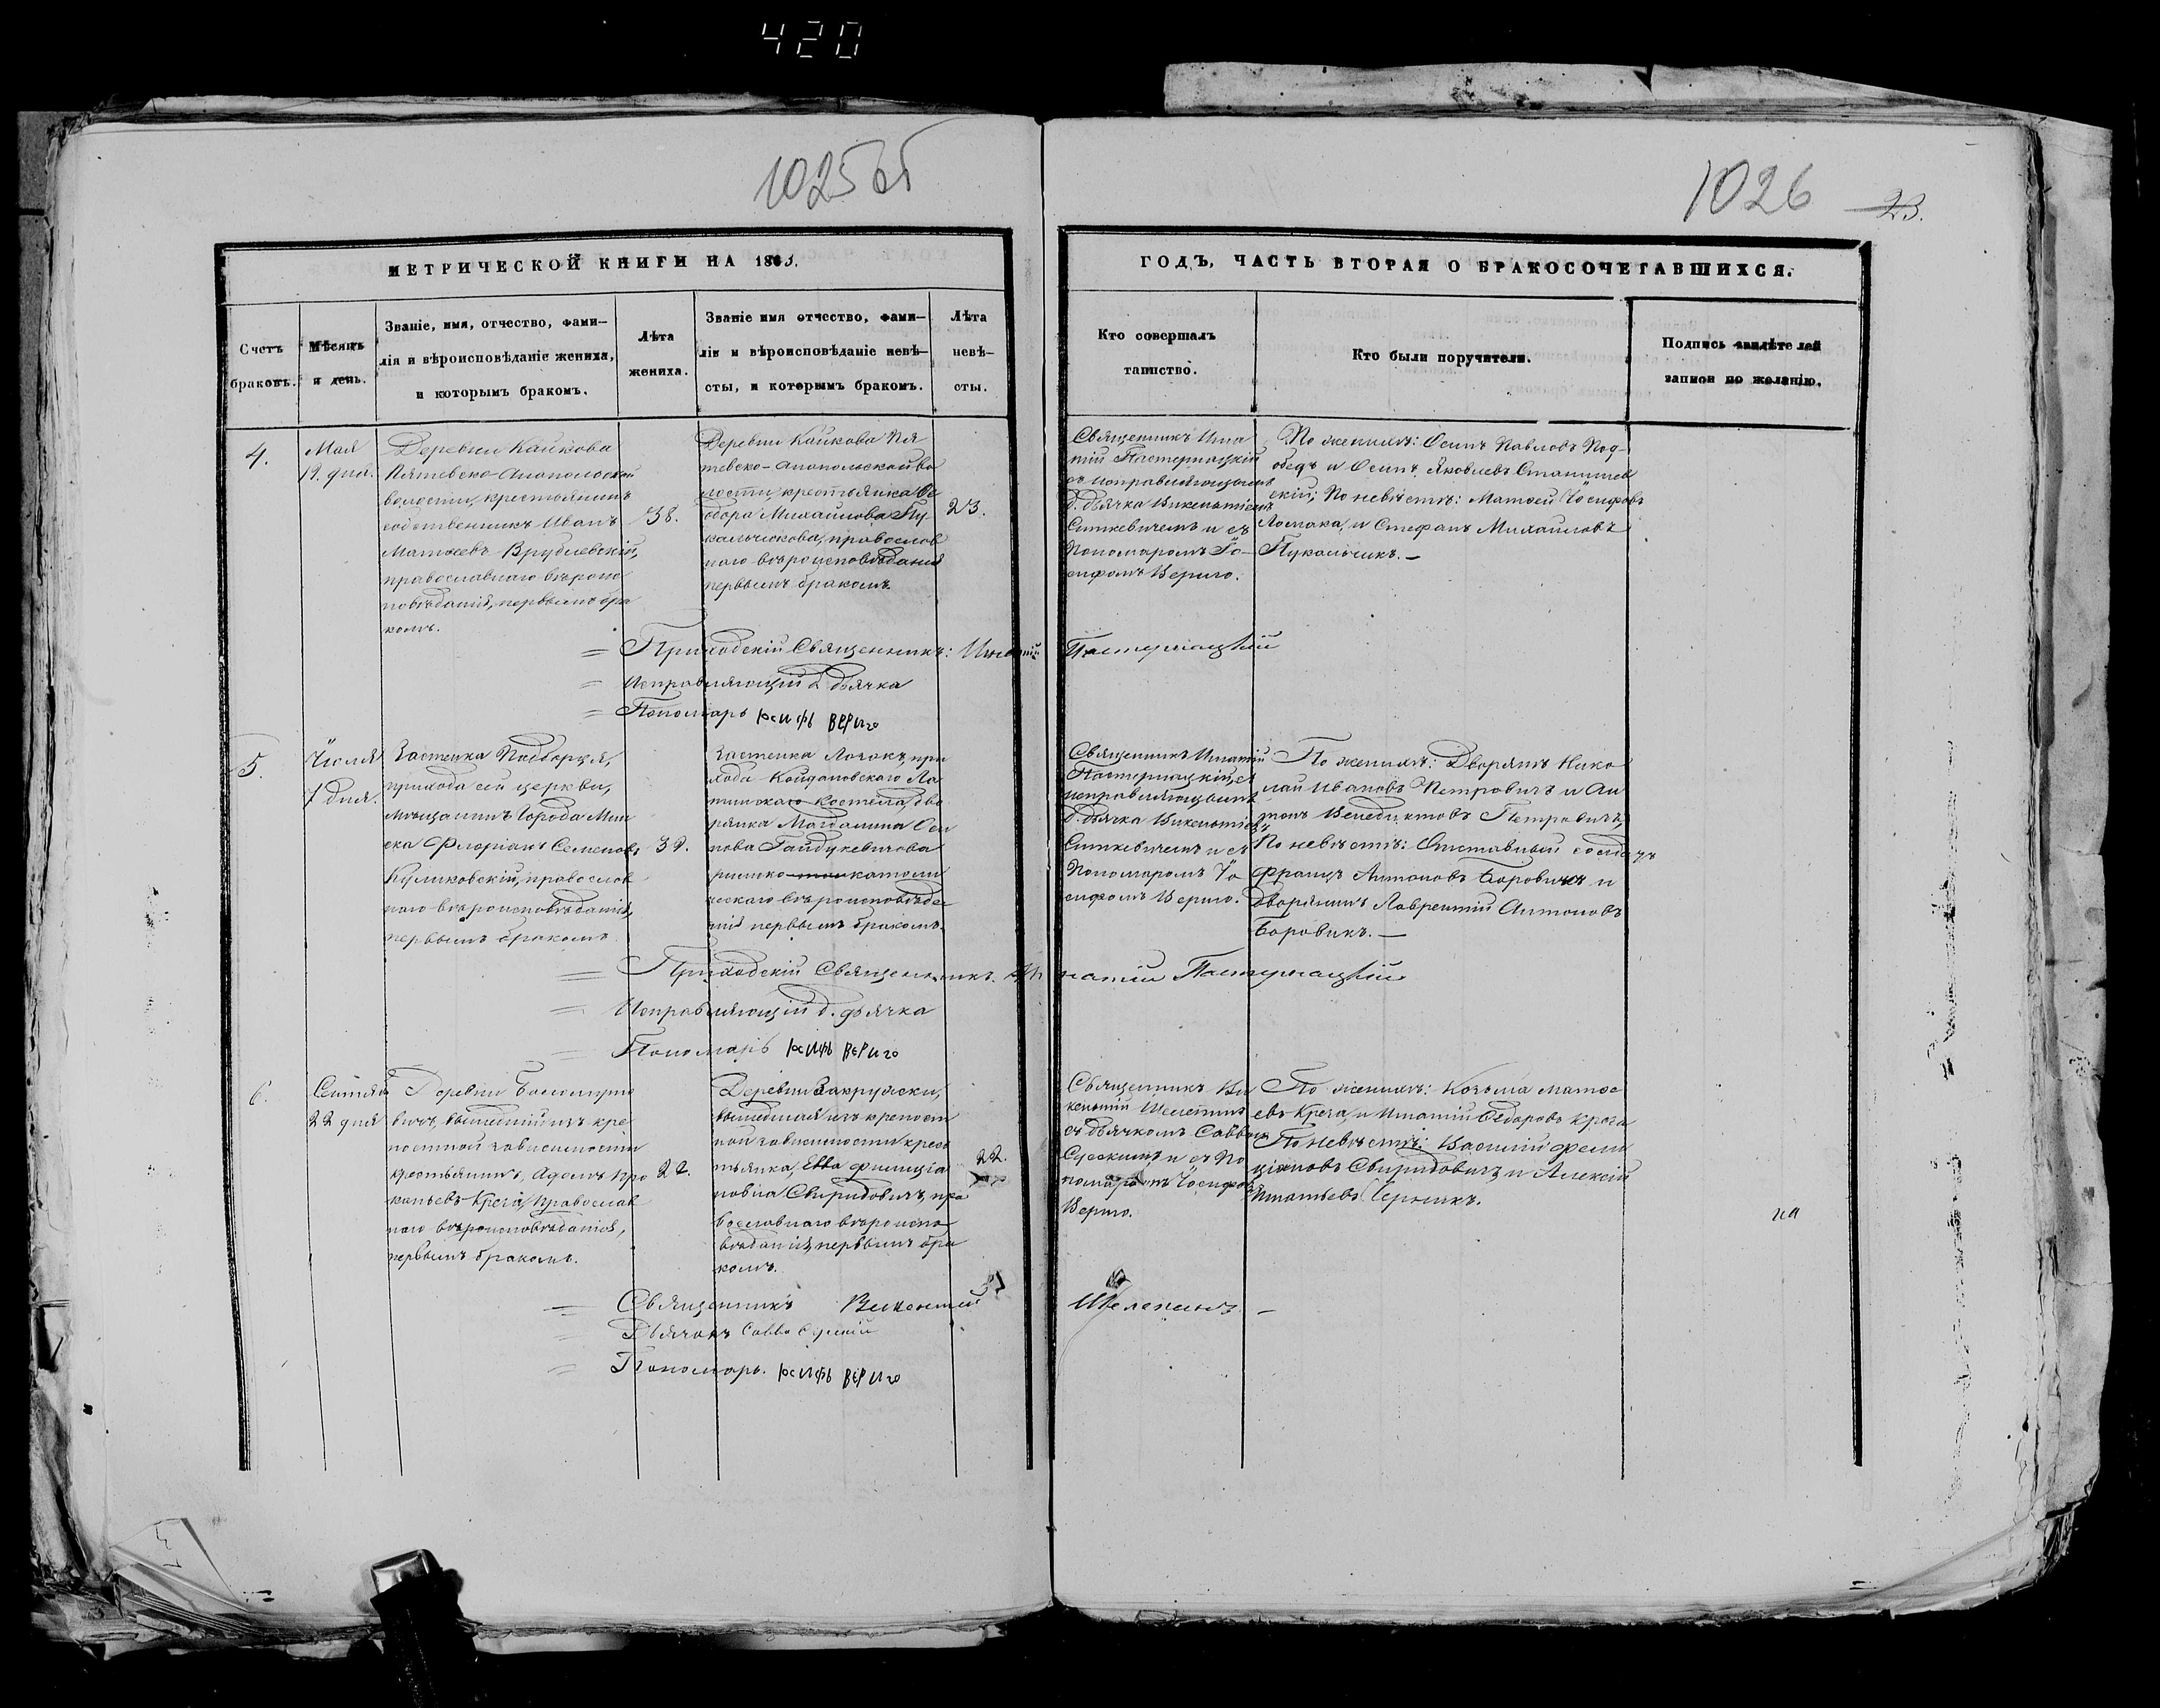 420
1025об
1026 23.
МЕТРИЧЕСКОЙ КНИГИ НА 1863.
ГОДЪ, ЧАСТЬ ВТОРАЯ О БРАКОСОЧЕТАВШИХСЯ.
Счетъ
браковъ.
Мѣсяцъ
и день.
Званіе, имя, отчество, фами-
лія и вѣроисповѣданіе жениха,
и которымъ бракомъ.
Лѣта
жениха.
Званіе имя отчество, фами-
лія и вѣроисповѣданіе невѣ-
сты, и которымъ бракомъ.
Лѣта
невѣ-
сты.
Кто совершалъ
таинство.
Кто были поручители.
Подпись свидѣтелей
записи по желанію.
4.
Мая
19. дня.
Деревни Кайкова
волости, крестьянинъ
собственникъ Иванъ
Матѳеевъ Врублевскій,
православнаго вѣроис
повѣданія, первымъ бра
комъ.
38.
Деревни Кайкова Пя
тевско-Анопольской во
лости, крестьянка Ѳе
одора Михайлова Пу
кальчикова, православ
наго вѣроисповѣданія
первымъ бракомъ.
23.
Священникъ Игна
тій Пастернацкій
съ исправляющимъ
д. дьячка Викентіемъ
Ситкевичемъ и съ
Пономаромъ Іо-
сифомъ Вериго.
По женихѣ: Осипъ Павловъ Под-
обедъ и Осипъ Яковлевъ Станишев
скій; По невѣстѣ: Матѳей Іосифовъ
Ломака, и Стефанъ Михайловъ
Пукальчикъ. —
= Приходскій Священникъ: Игнатій Пастернацкій
= Исправляющій д. дьячка
= Пономарь Іосифъ Вериго
5.
Іюля
7 дня.
Застенка Подборья,
прихода сей церкви,
мѣщанинъ Города Мин
ска Флоріанъ Семеновъ
Куликовскій, православ
наго вѣроисповѣданія,
первымъ бракомъ
39.
Застенка Лозокъ, при
хода Койдановскаго Ла
тинскаго костела, дво
рянка Магдалина Оси
пова Гайдукевичова
римско-католи
ческаго вѣроисповѣда
нія первымъ бракомъ.
Священникъ Игнатій
Пастернацкій, съ
исправляющимъ
д. дьячка Викентіемъ
Ситкевичемъ и съ
Пономаромъ Іо
сифомъ Вериго.
По женихѣ: Дворянъ Нико
лай Ивановъ Петровичъ и Ан
тонъ Бенедиктовъ Петровичъ,
По невѣстѣ: Отставный солдатъ
Францъ Антоновъ Боровикъ и
Дворянинъ Лаврентій Антоновъ
Боровикъ. —
= Приходскій Священникъ. Игнатій Пастернацкій
= Исправляющій д. дьячка
= Пономарь Іосифъ Вериго
6.
Сентября
22 дня
Деревни
вичъ, вышедшій изъ кре
постной зависимости
крестьянинъ, Адамъ Про
копьевъ Креча, Православ
наго вѣроисповѣданія,
первымъ бракомъ.
22.
Деревни Закружки,
вышедшая изъ крепост
ной зависимости крес
тьянка, Евва Филиціа
новна Свиридовичъ, пра
вославнаго вѣроиспо
вѣданія, первымъ бра
комъ.
22.
Священникъ Ви
кентій Шелепинъ
съ дьячкомъ Саввою
Сѵскимъ и съ По
номаромъ Іосифомъ
Вериго.
По женихѣ: Козьма Матѳе
евъ Креча, и Игнатій Ѳедоровъ Креча
По невѣстѣ: Василій Фели
ціановъ Свиридовичъ и Алексій
Игнатьевъ Чернякъ.
= Священникъ Викентій Шелепинъ —
= Дьячокъ Савва Сѵскій
= Пономарь. Іосифъ Вериго